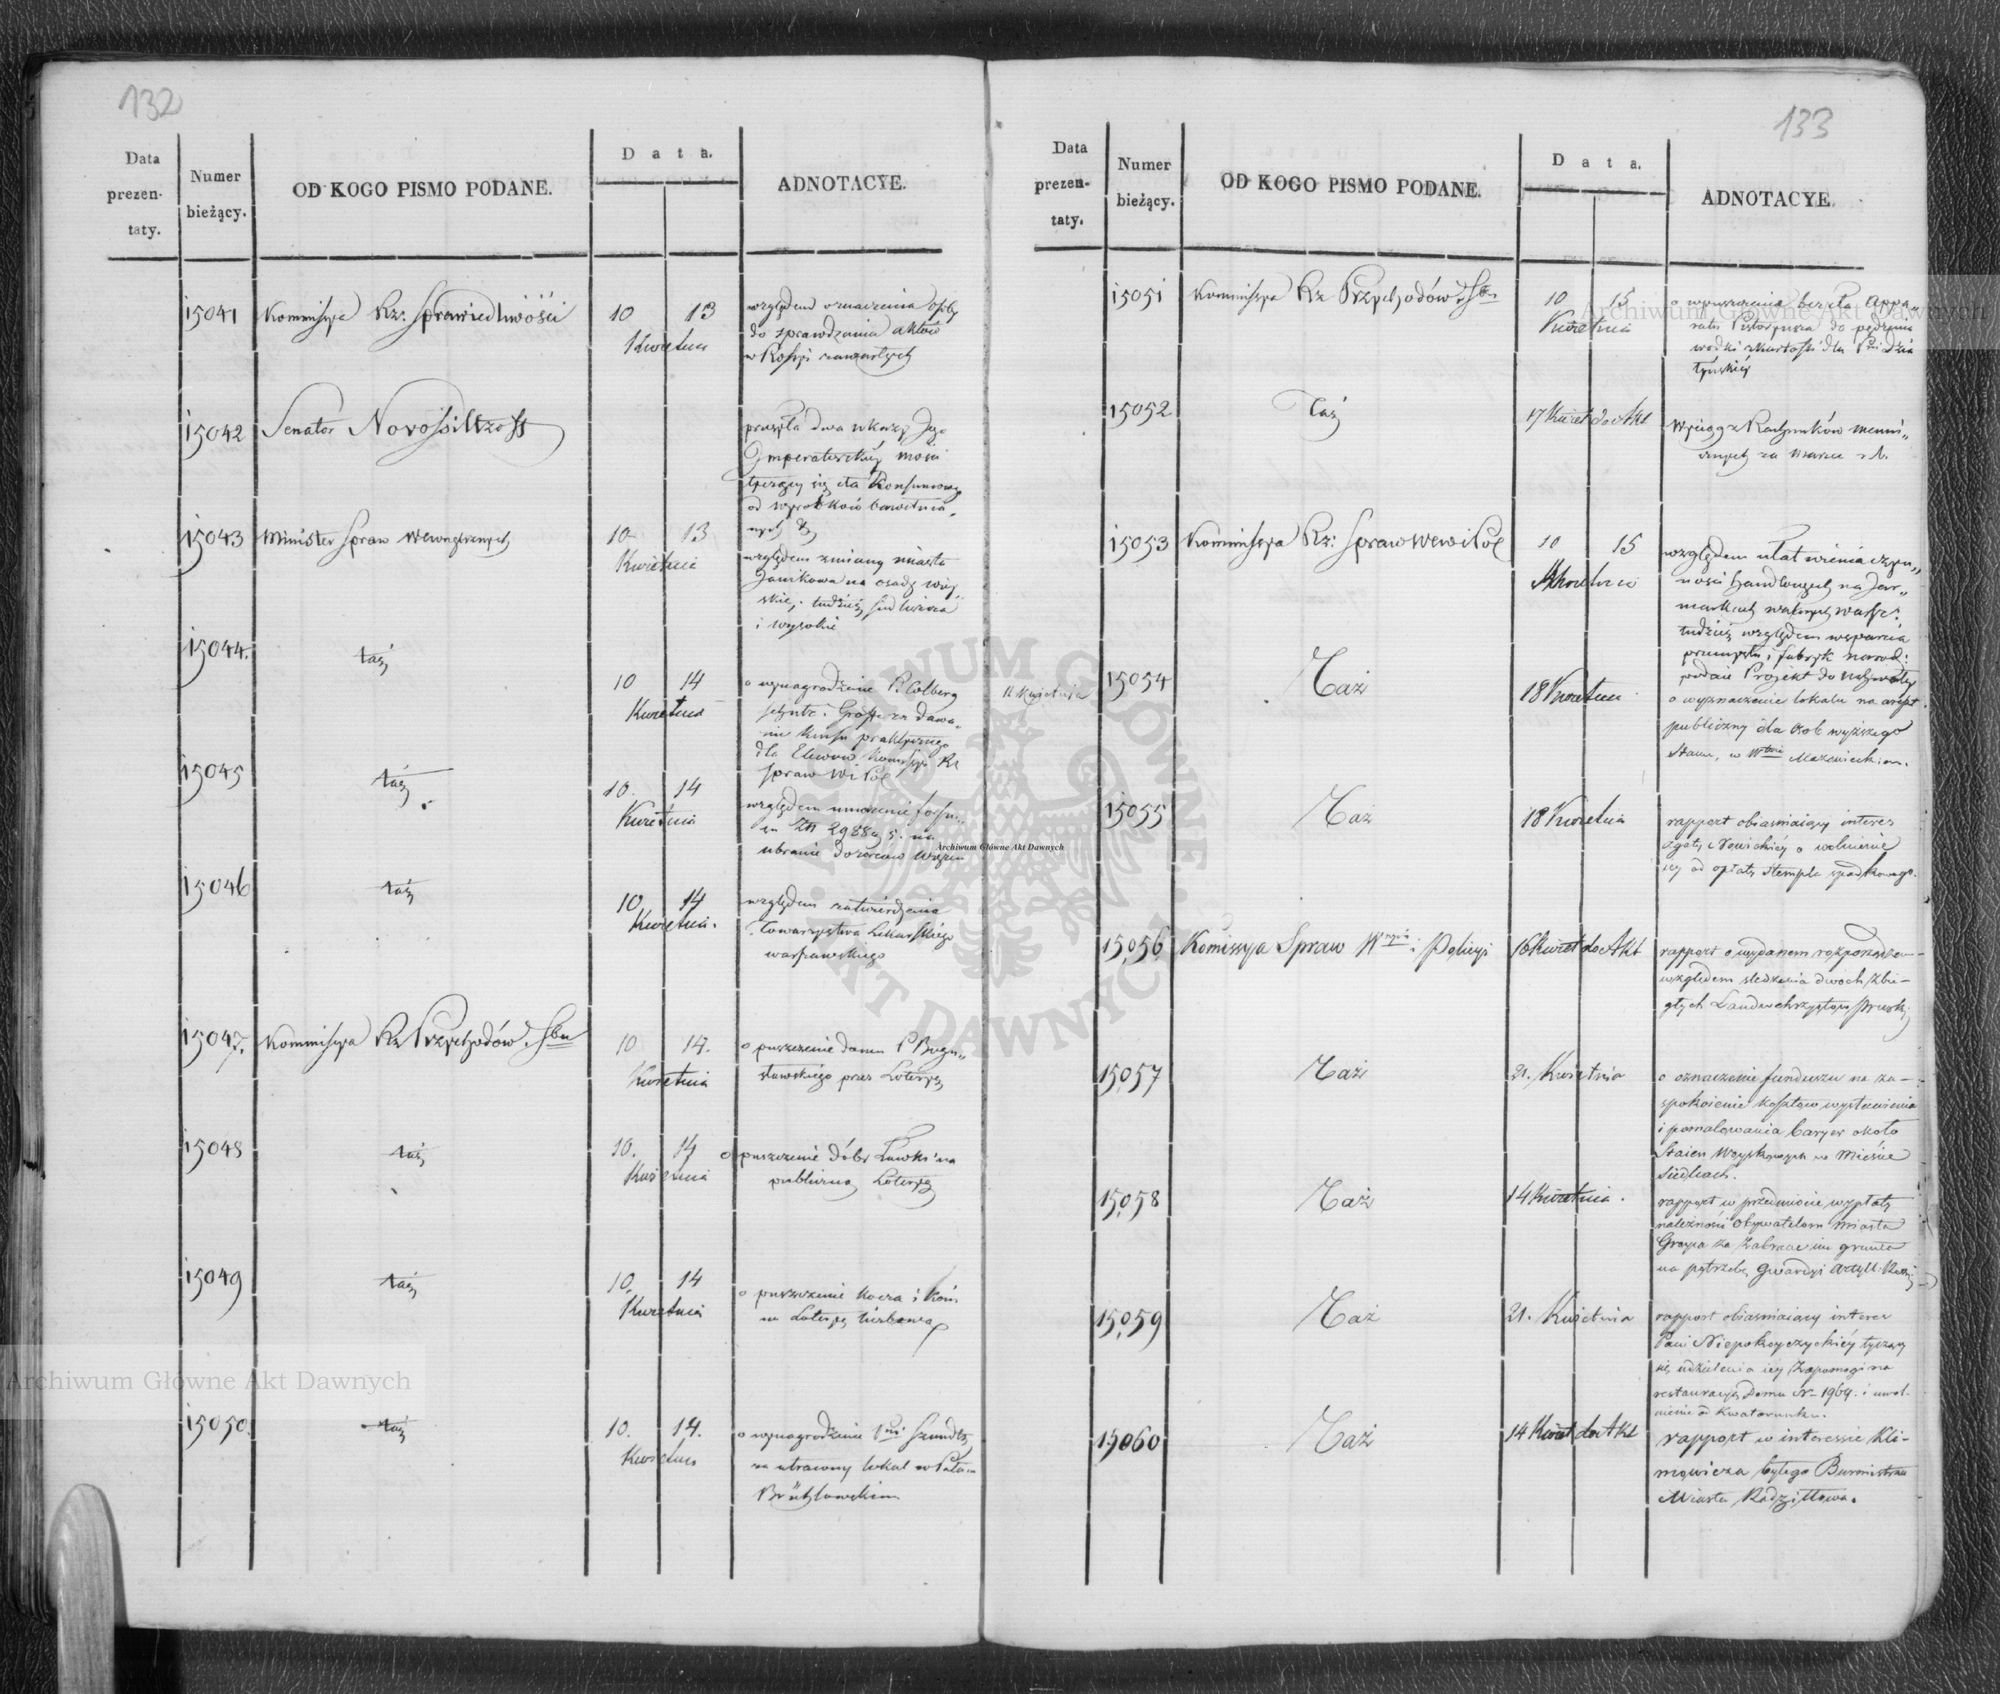 132
Data prezen- taty.
Numer bieżący.
OD KOGO PISMO PODANE.
Data.
ADNOTACYE.
15041 Kommissya Rz: Sprawiedliwości 10 13 Kwietnia
względem oznaczenia osoby
do sprawdzenia aktów
w Rossyi zawartych
15042 Senator Novossiltzoff
przesyła dwa ukazy Jego
Imperatorskiey Mości
tyczący się cła Konsumowego
od wyrobków bawełnia-
nych &
15043 Minister Spraw Wewnętrznych 10 13 Kwietnia
względem zmiany miasta
Janikowa na osadę wiey-
ską, tudzież
i wysokie
15044. taż 10 14 Kwietnia
o wynagrodzenie P. Colberg
za dawa-
nie kursu praktycznego
dla Elewow Komissyi Rz
spraw W i Pol
15045 taż 10. 14 Kwietnia
względem
2988 na
ubranie dozorcow więzien
15046 taż 10 14 Kwietnia.
względem zatwierdzenia
Towarzystwa Lekarskiego
warszawskiego
15047. Kommissya Rz Przychodów i Sbu 10 14. Kwietnia
o puszczenie domu P Bogu-
sławskiego przez Loteryą
15048 taż 10. 14 Kwietnia
o puszczenie dóbr Ławki na
publiczną Loteryą
15049 taż 10. 14 Kwietnia
o puszczenie Kocza i Koni
na Loteryą liczbową
15050. taż 10. 14. Kwietnia
o wynagrodzenie Pni Szmidt
za utracony lokal w Pała-
Brühlowskim
133
Data prezen- taty.
Numer bieżący.
OD KOGO PISMO PODANE.
Data.
ADNOTACYE.
15051 Kommissya Rz Przychodów i Sbu 10 15 Kwietnia
o wpuszczenia bez cła Appa-
ratu Pistoryusza do pędzenia
wodki z kartofli dla Pni Dzia
łyńskiéy
15052 Taż 17 Kwiet do Akt
Wyciąg z Rachunków menni-
cznych za Marzec r. b.
15053 Kommissya Rz: Spraw Wew i Pol 10 15 Kwietnia
względem ułatwienia czyn-
ności handlowych na Jar-
markach wełnych Warsz:
tudzież względem wsparcia
przemysłu i fabryk narod:
podaie Projekt do uchwały
11 Kwietnia 15054 Taż 18 Kwietnia
o wyznaczenie lokalu na areszt
publiczny dla osob wyższego
stanu, w Wdtwie Mazowieckim.
15055 Taż 18 Kwietnia
rapport obiasniaiący interes
Agaty Nowickiéy o wolnienie
iey od opłaty stempla spadkowego.
15056 Komissya Spraw Wnych i Policyi 16 Kwiet do Akt
rapport o wydanem rozporządzen-
względem sledzenia dwoch zbie-
głych Landwehrzystow prusk:
15057 Taż 21. Kwietnia
o oznaczenie funduszu na za-
spokoienie kosztow wystawienia
i pomalowania baryer około
Staien Woyskowych w Mieście
Siedlcach.
15058 Taż 14 Kwietnia.
rapport w przedmiocie wypłaty
należności Obywatelom Miasta
Grójca za zabrane im grunta
na potrzebę Gwardyi Artyll: Konn:
15059 Taż 21. Kwietnia
rapport obiasniaiący interes
Pani Niepokoyczyckiéy tyczący
się udzielenia iéy zapomogi na
restauracyą Domu Nr 1969. i uwol-
nienie od Kwaterunku.
15060 Taż 14 Kwiet do Akt
rapport w interessie Kli-
mowicza byłego Burmistrza
Miasta Radziłłowa.
Archiwum Główne Akt Dawnych
ARCHIWUM GŁÓWNE AKT DAWNYCH
Archiwum Główne Akt Dawnych
Archiwum Główne Akt Dawnych